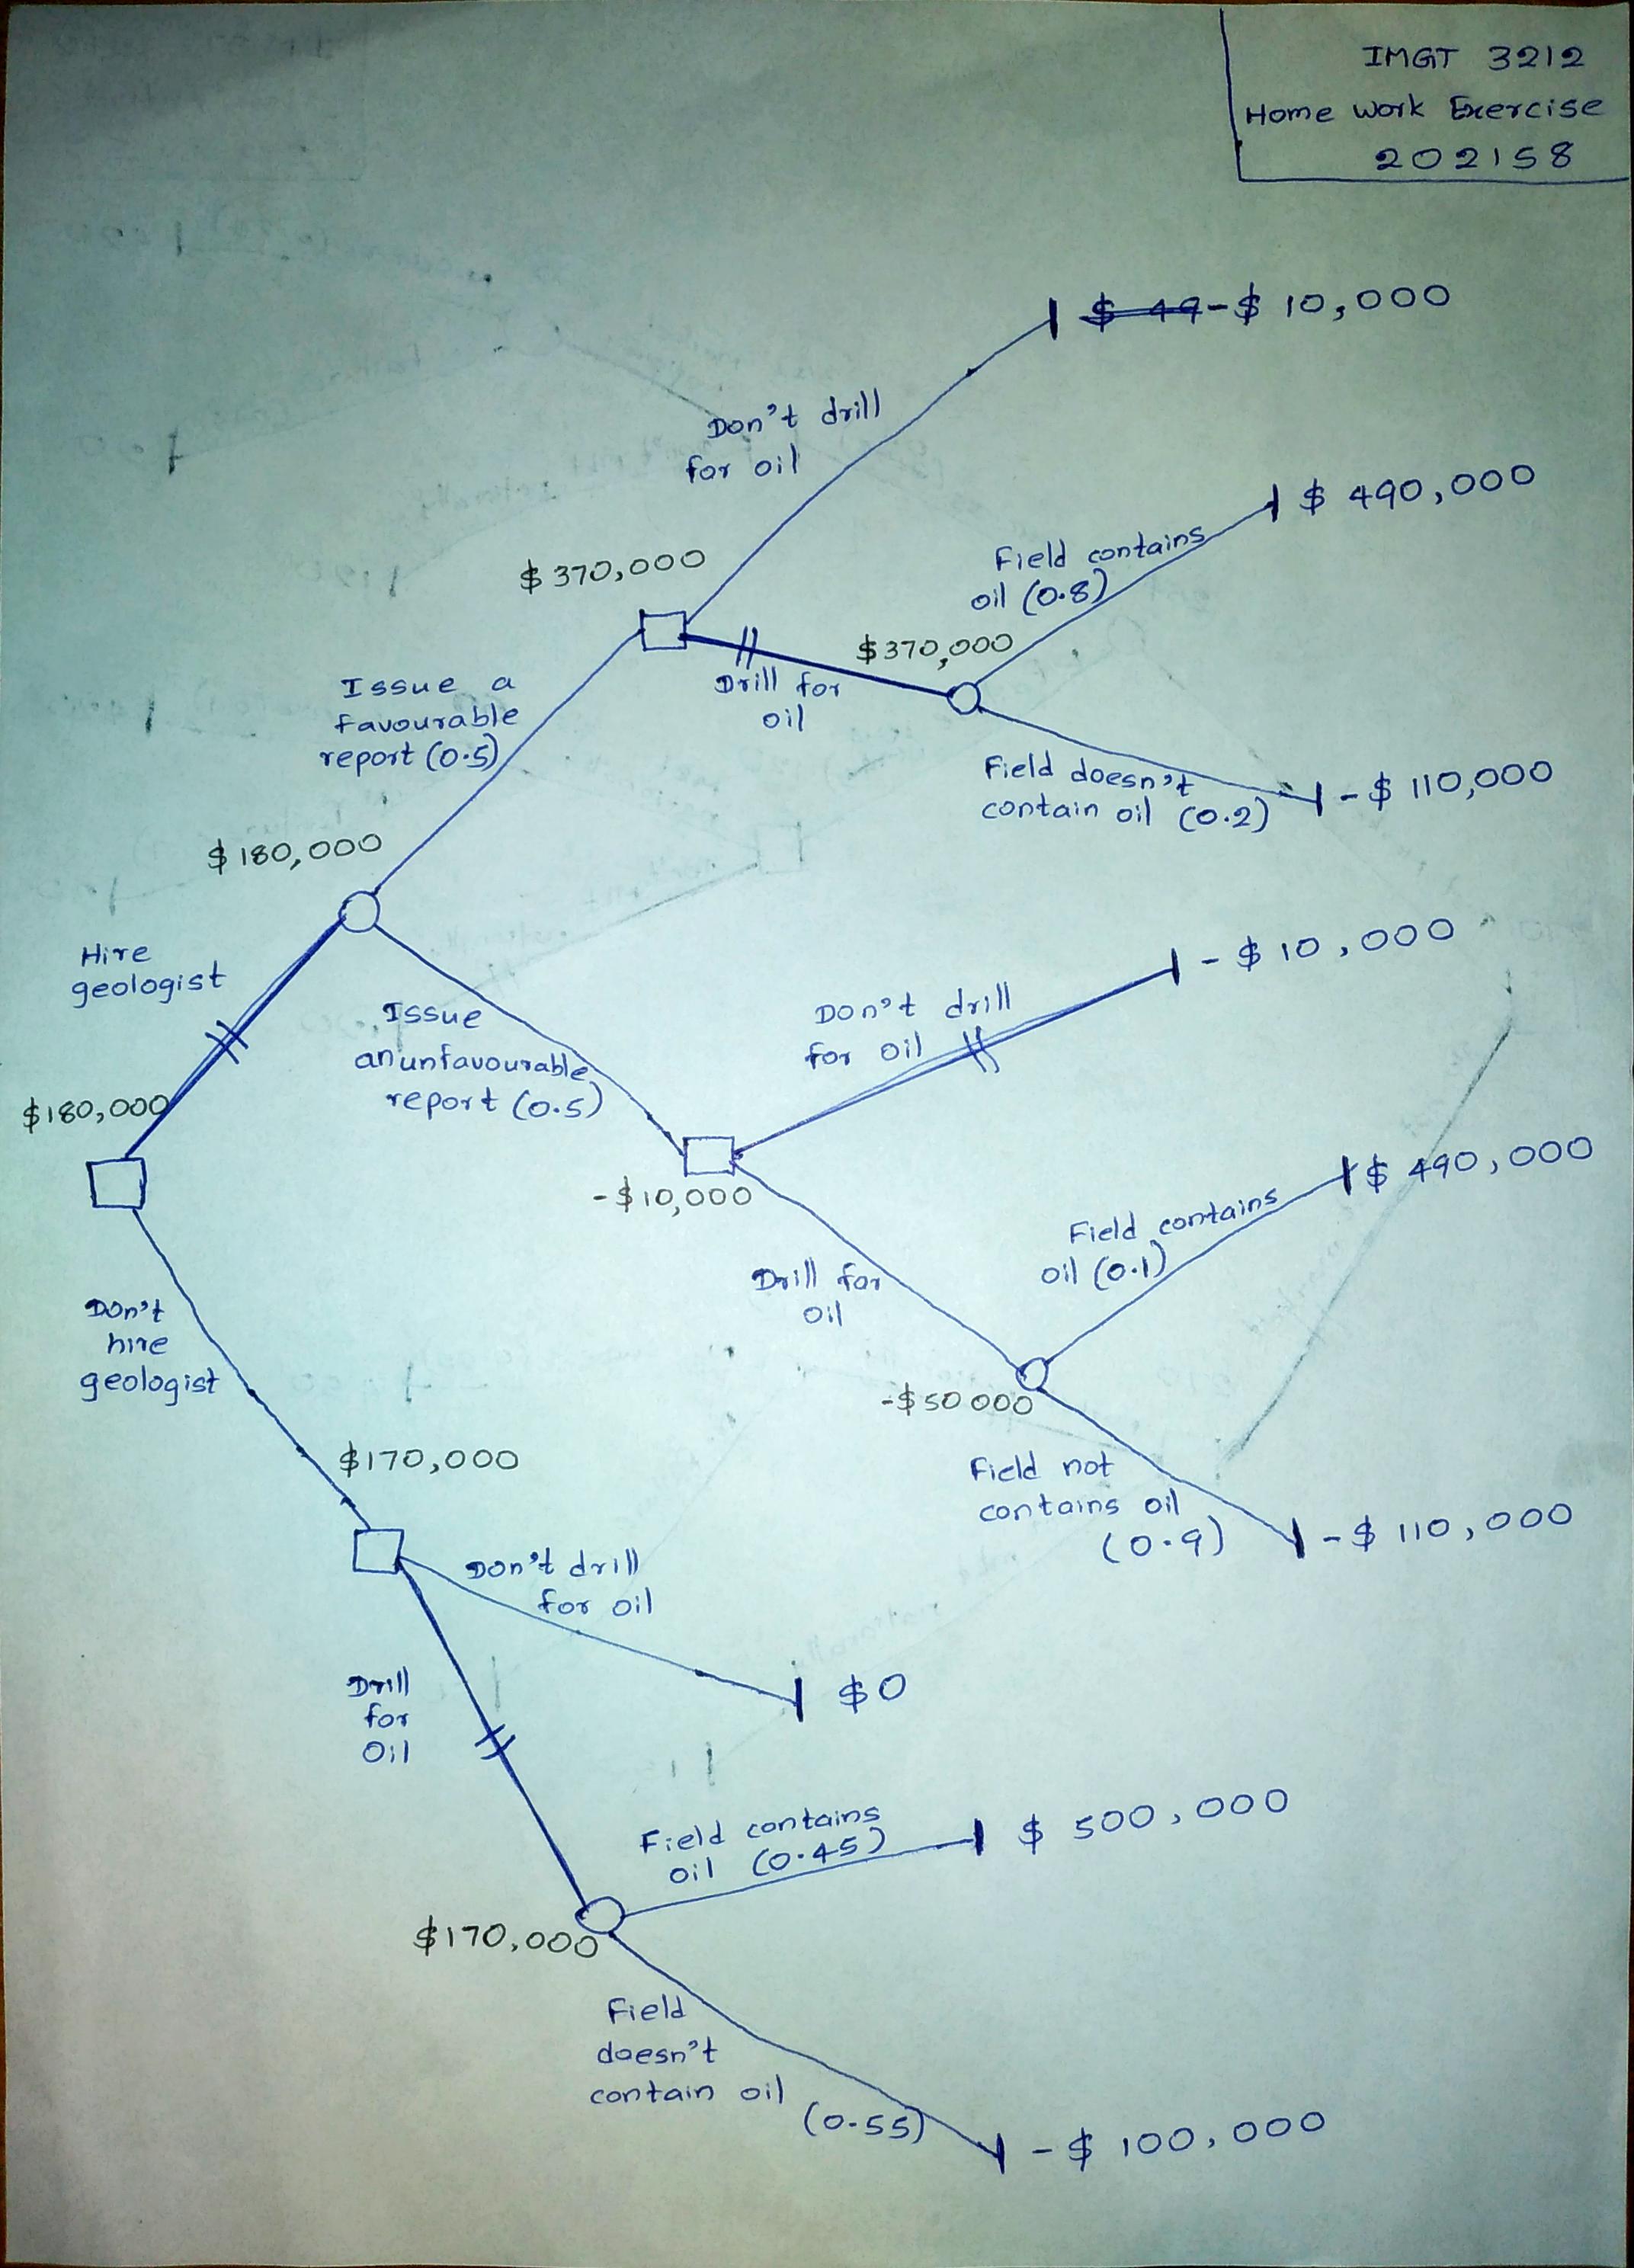 IMGT 3212
Home Work Exercise
202158
$ 49 -$ 10,000
Don't drill
for oil
$ 490,000
Field contains
oil (0.8)
$370,000
$370,000
Drill for
oil
Issue a
favourable
report (0.5)
Field doesn't
contain oil (0.2)
-$ 110,000
$180,000
Hire
geologist
-$ 10,000
Don't drill
for oil
Issue
an unfavourable
report (0.5)
$180,000
-$10,000
$ 490,000
Field contains
oil (0.1)
Drill for
oil
Don't
hire
geologist
-$50 000
$170,000
Field not
contains oil
(0.9)
-$ 110,000
Don't drill
for oil
$0
Drill
for
Oil
Field contains
oil (0.45)
$ 500,000
$170,000
Field
doesn't
contain oil
(0.55)
-$ 100,000